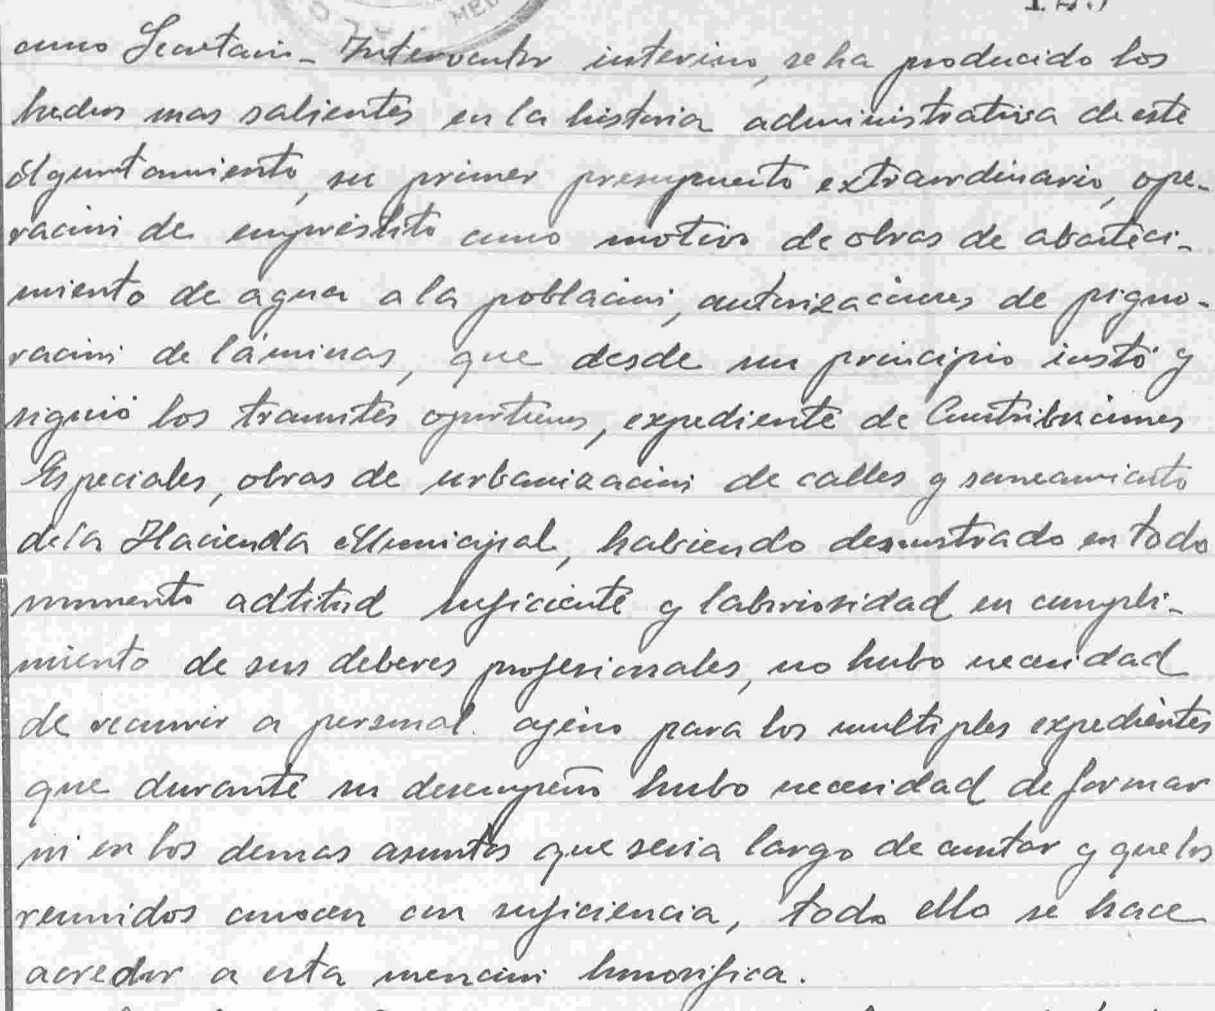 como Secretario-Interventor interino, se ha producido los
hechos mas salientes en la historia administrativa de este
Ayuntamiento, su primer presupuesto extraordinario, ope-
ración de empréstito como motivo de obras de abasteci-
miento de agua a la población, autorizaciones de pigno-
ración de láminas, que desde un principio instó y
siguió los tramites oportunos, expediente de Contribuciones
Especiales, obras de urbanización de calles y saneamiento
de la Hacienda Municipal, habiendo demostrado en todo
momento adtitud suficiente y laboriosidad en cumpli-
miento de sus deberes profesionales, no hubo necesidad
de recurrir a personal ajeno para los multiples expedientes
que durante su desempeño hubo necesidad de formar
ni en los demas asuntos que seria largo de contar y que los
reunidos conocen con suficiencia, todo ello se hace
acredor a esta mención honorifica.